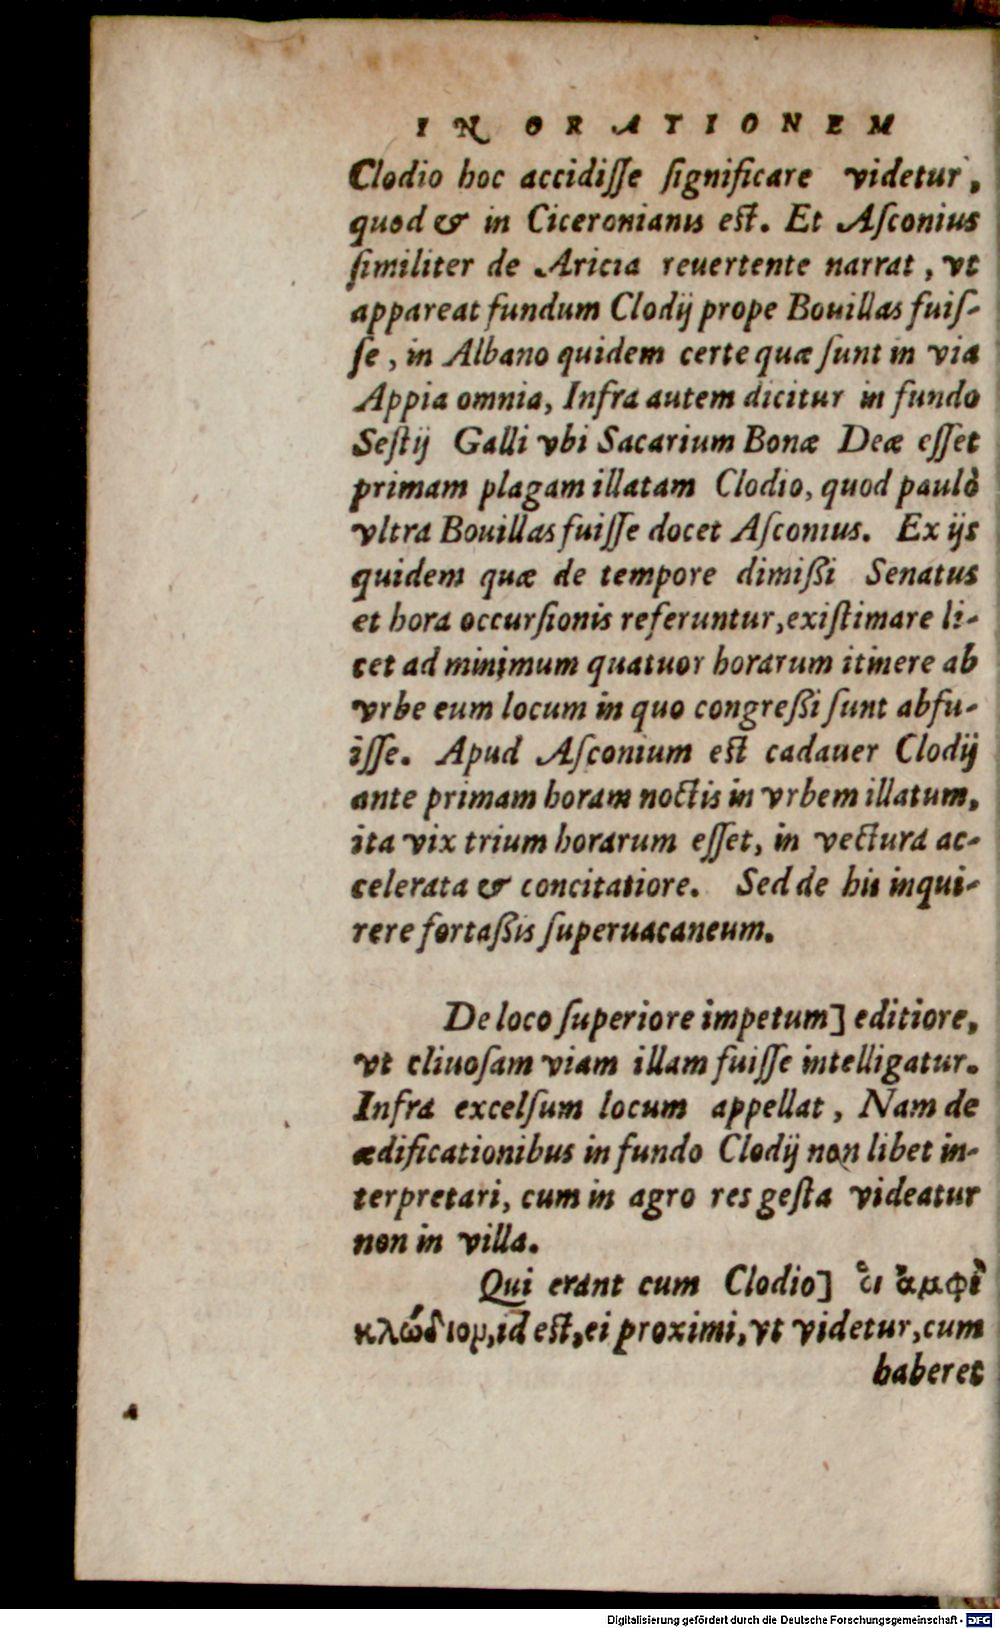 IN ORATIONEM
Clodio hoc accidiſſe ſignificare videtur,
quod & in Ciceronianis eſt. Et Aſconius
ſimiliter de Aricia reuertente narrat, vt
appareat fundum Clodij prope Bouillas fuiſ-
ſe, in Albano quidem certe quæ ſunt in via
Appia omnia, Infra autem dicitur in fundo
Seſtij Galli vbi Sacarium Bonæ Deæ eſſet
primam plagam illatam Clodio, quod paulò
vltra Bouillas fuiſſe docet Aſconius. Ex ijs
quidem quæ de tempore dimißi Senatus
et hora occurſionis referuntur, exiſtimare li-
cet ad minimum quatuor horarum itinere ab
vrbe eum locum in quo congreßi ſunt abfu-
iſſe. Apud Aſconium eſt cadauer Clodij
ante primam horam noctis in vrbem illatum,
ita vix trium horarum eſſet, in vectura ac-
celerata & concitatiore. Sed de his inqui-
rere fortaßis ſuperuacaneum.
De loco ſuperiore impetum] editiore,
vt cliuoſam viam illam fuiſſe intelligatur.
Infra excelſum locum appellat, Nam de
ædificationibus in fundo Clodij non libet in-
terpretari, cum in agro res geſta videatur
non in villa.
Qui erant cum Clodio] ὃι ἀμφὶ
κλώδιον, id eſt, ei proximi, vt videtur, cum
haberet
Digitalisierung gefördert durch die Deutsche Forschungsgemeinschaft - DFG